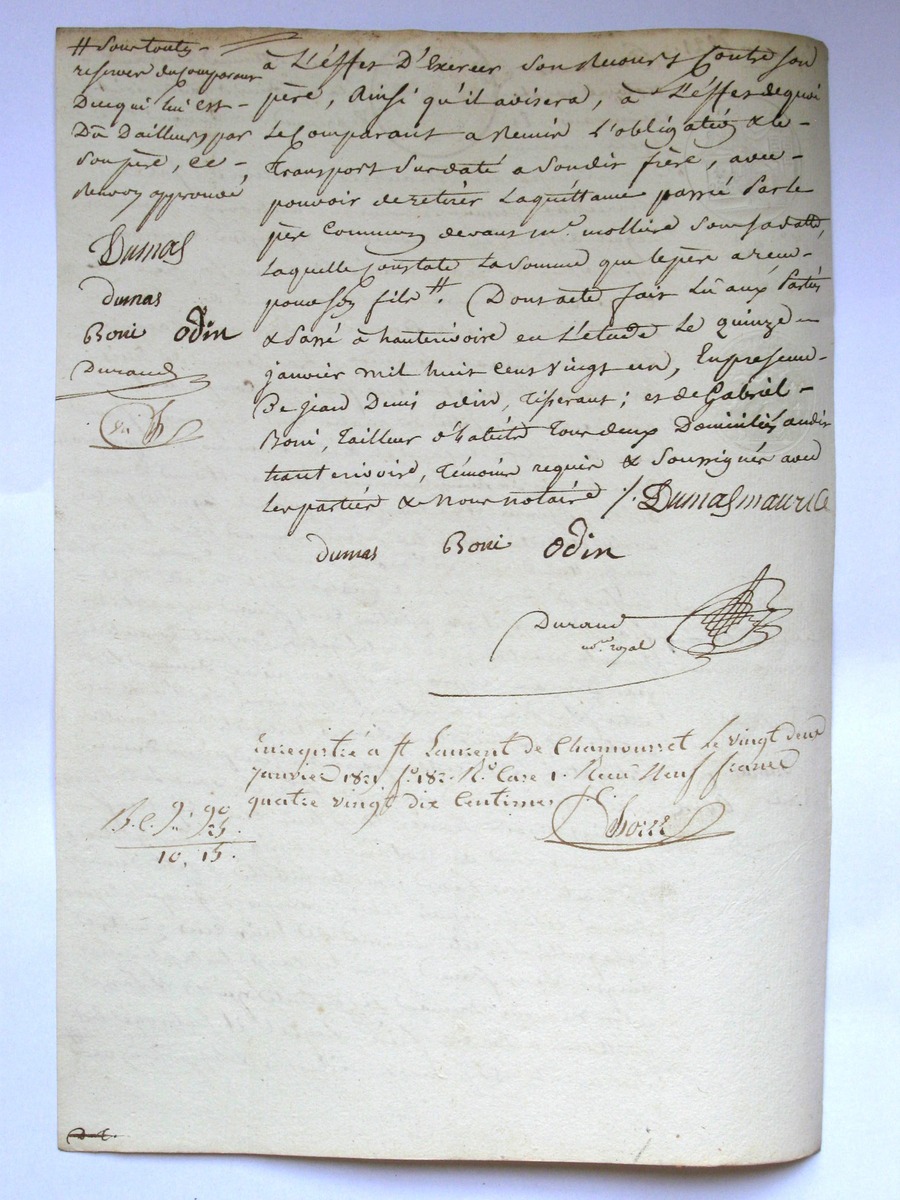 # Sous toutes
reserves du Comparant
De ce qui lui est
Dû D'ailleurs par
son père, Ce
Renvoy approuvé,
Dumas
Dumas
Boni Odin
Durand
à L'éffet D'Exercer son Recours Contre son
père, Ainsi qu'il avisera, à L'éffet de quoi
Le Comparant a Remis L'obligation & le
transport Surdaté a Son dit frère, avec
pouvoir de retirer La quittance passée par le
père Commun devant Me. mollière Sous sa datte,
Laquelle Constate La Somme que le père a reçu
pour son fils #. Dont acte fait Lû aux Parties
& Passé à hauterivoire en L'étude Le quinze
janvier mil huit Cent Vingt un, En présence
De jean Denis odin, Tisserant; et de Gabriel
Boni, Tailleur d'habits Tous deux Domiciliés audit
hauterivoire, Témoins requis & Soussignés avec
Les parties & Nous notaire ./. Dumas maurice
Dumas Boni Odin
Durand
no.re royal
Enregistré a St Laurent de Chamousset le vingt deux
janvier 1821 fo. 182. Ro. Case 1. Reçu Neuf francs
quatre vingt dix Centimes
9. 90
10, 15.